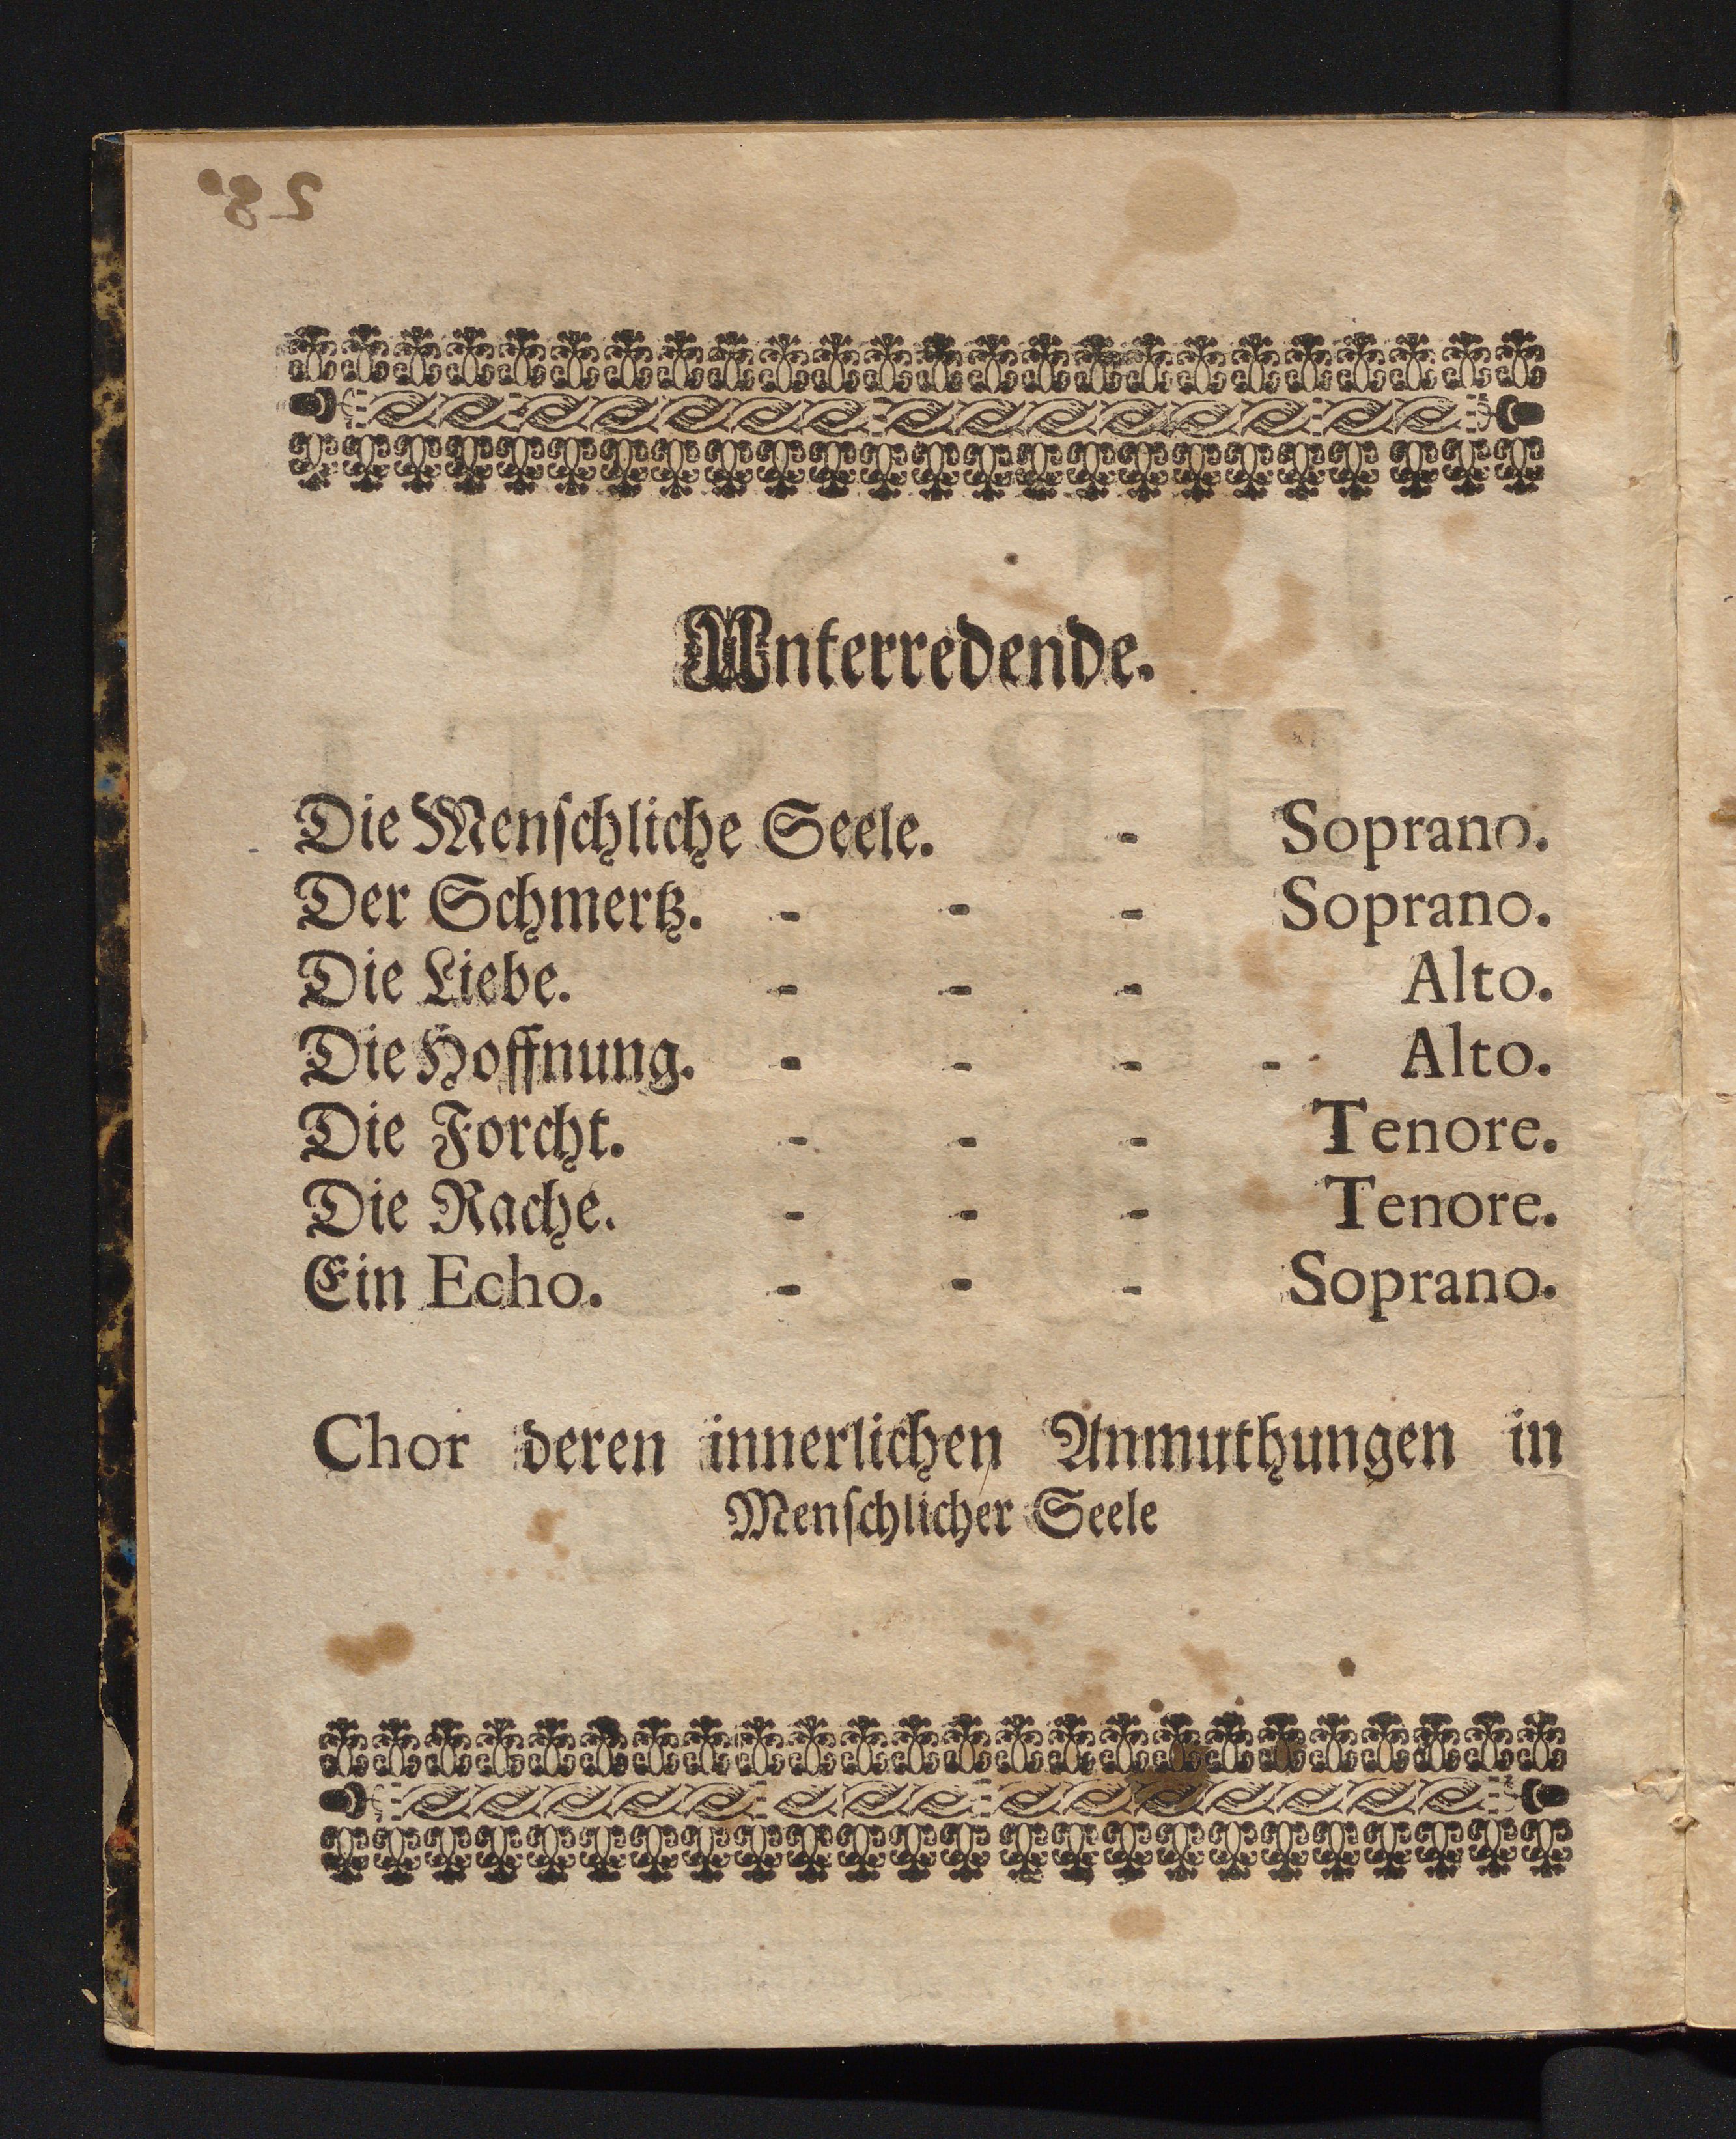 Unterredende.
Die Menſchliche Seele. - Soprano.
Der Schmertz. - - - Soprano.
Die Liebe. - - - Alto.
Die Hoffnung. - - - - Alto.
Die Forcht. - - - Tenore.
Die Rache. - - - Tenore.
Ein Echo. - - - Soprano.
Chor deren innerlichen Anmuthungen in
Menſchlicher Seele